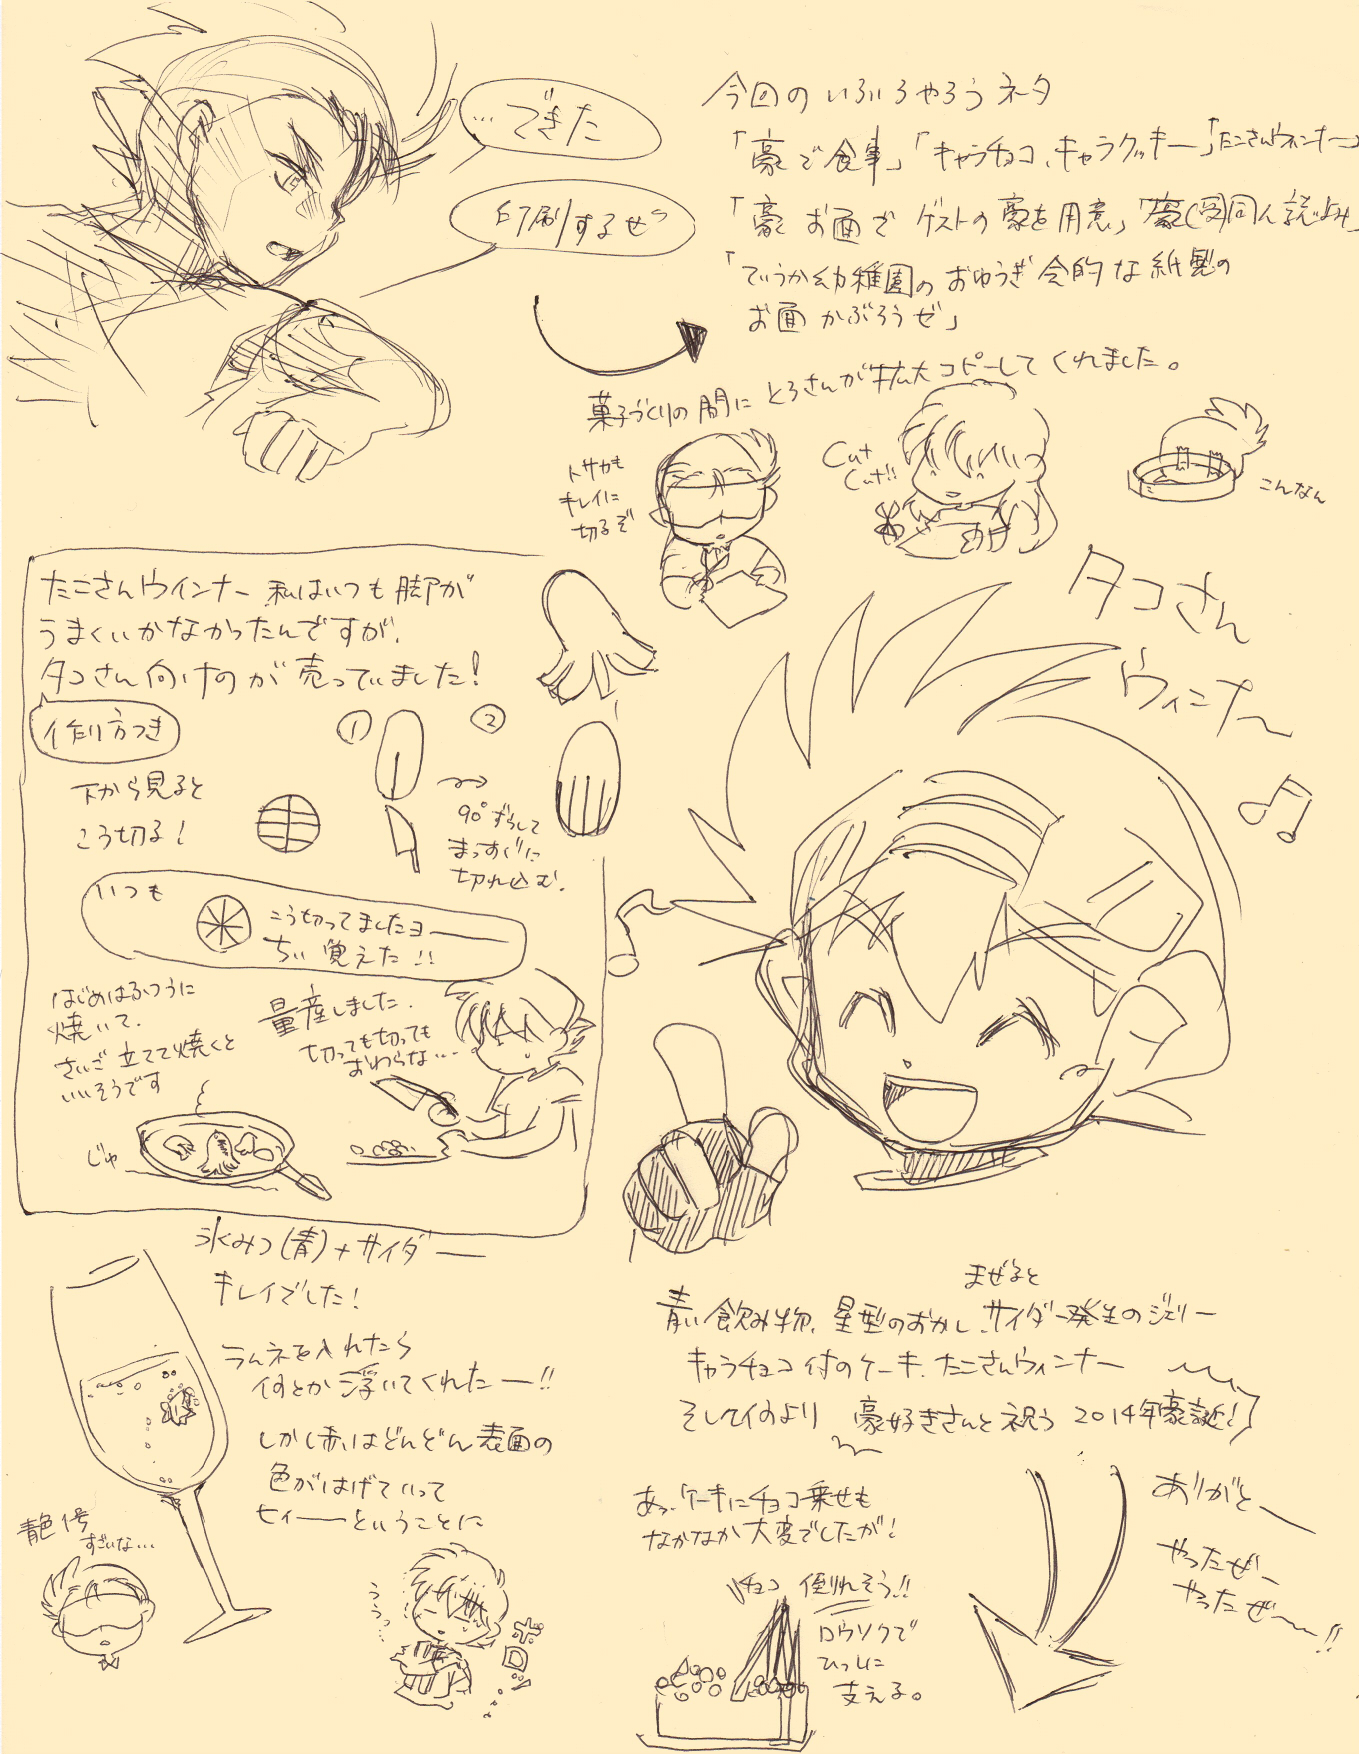 …できた
印刷するぜっ
今回のいぶしろやろうネタ
「豪で食事」「キャラチョコ、キャラクッキー」「たこさんウィンナー」
「豪お面でゲストの豪を用意」「豪(受)同人誌よみ」
「ていうか幼稚園のおゆうぎ会的な紙製の
お面かぶろうぜ」
菓子づくりの間にとろさんが拡大コピーしてくれました。
トサカも
キレイに
切るぞ
Cut
Cut!!
こんなん
タコさん
ウィンナ〜
たこさんウインナー 私はいつも脚が
うまくいかなかったんですが、
タコさん向けのが売っていました!
作り方つき
① ②
下から見ると
こう切る!
90°ずらして
まっすぐに
切れ込む.
いつも
こう切ってましたヨー
ちぃ覚えた!!
はじめはふつうに
焼いて、
さいご立てて焼くと
いいそうです
じゅー
量産しました.
切っても切っても
おわらな…
氷みつ(青)+サイダー
キレイでした!
ラムネを入れたら
何とか浮いてくれたー!!
しかし赤はどんどん表面の
色がはげていって
ヒィーーということに
青色1号
すごいな…
ううっ…
ボロ…
まぜると
青い飲み物、星型のおかし、サイダー発生のジェリー
キャラチョコ付のケーキ、たこさんウィンナー
そして何より 豪好きさんと祝う 2014年豪誕!
あっ、ケーキにチョコ乗せも
なかなか大変でしたが!
チョコ 倒れそう!!
ロウソクで
ひっしに
支える。
ありがとー
やったぜー
やったぜ〜!!